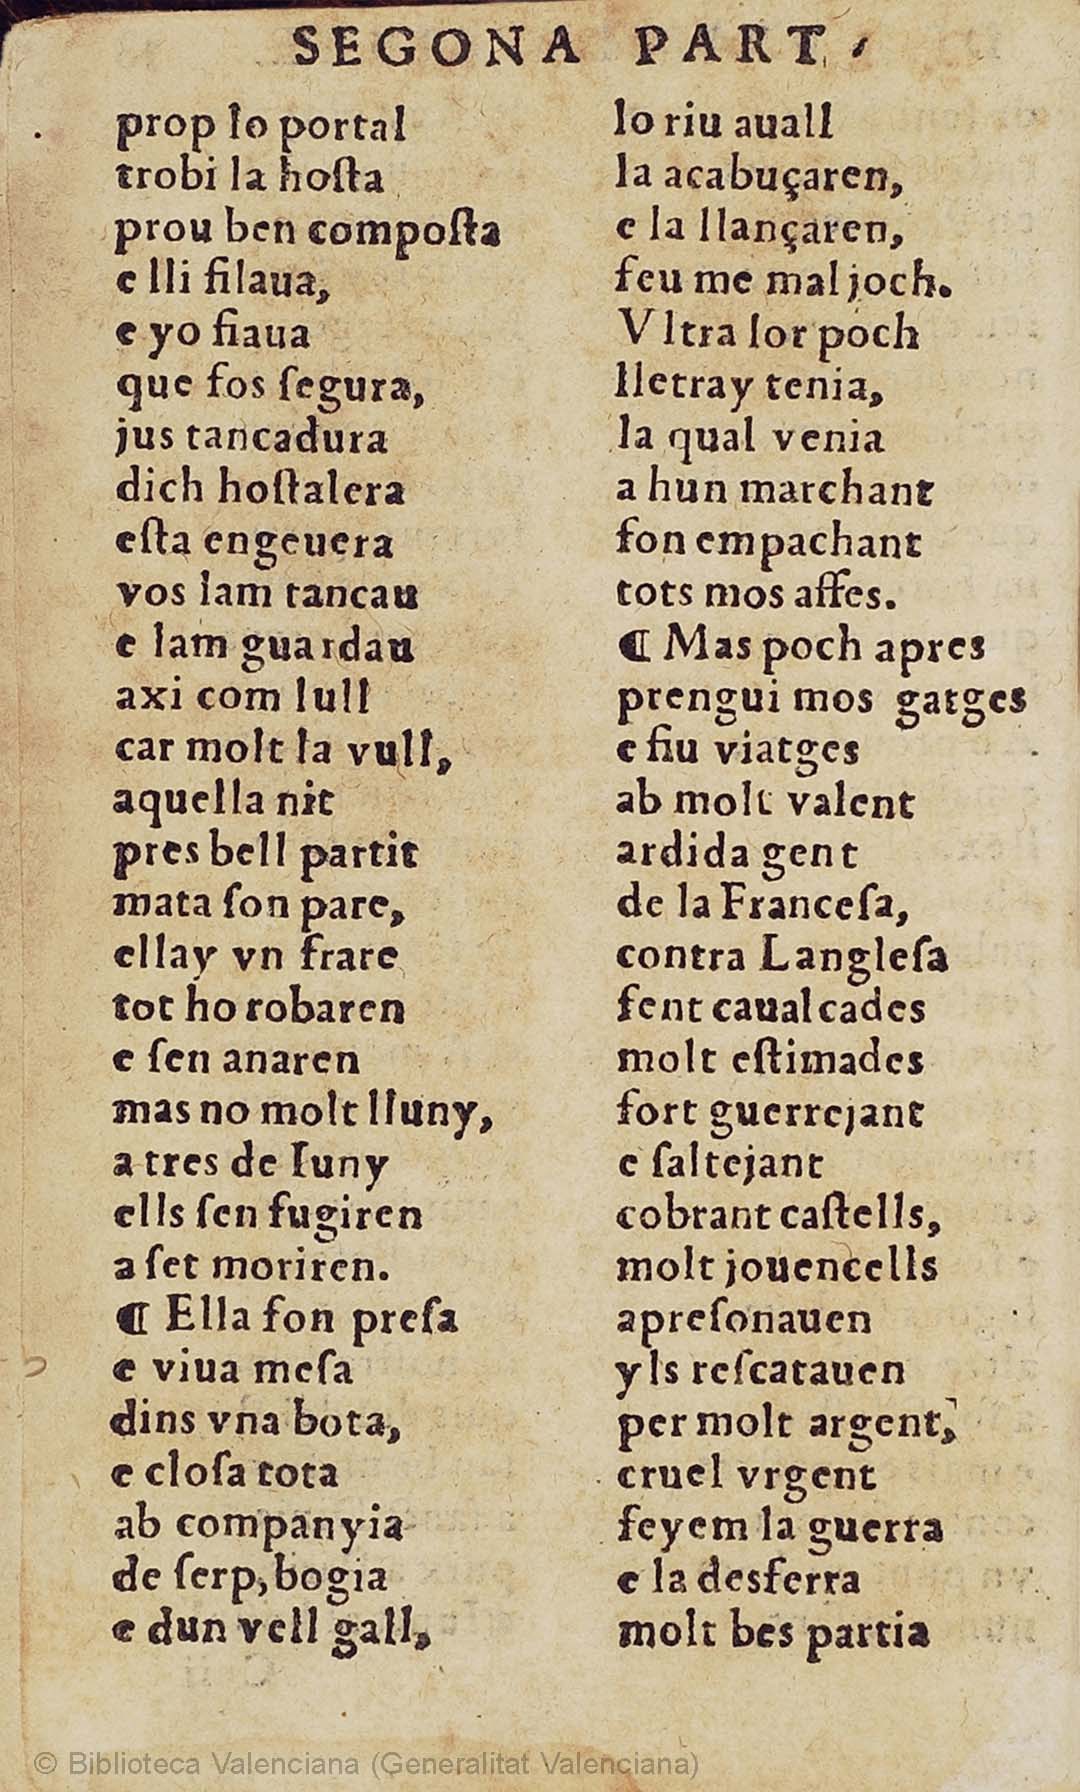 SEGONA PART.
prop lo portal
trobi la hoſta
prou ben compoſta
e lli filaua,
e yo fiaua
que fos ſegura,
jus tancadura
dich hoſtalera
eſta engeuera
vos lam tancau
e lam guardau
axi com lull
car molt la vull,
aquella nit
pres bell partit
mata ſon pare,
ellay vn frare
tot ho robaren
e ſen anaren
mas no molt lluny,
a tres de Iuny
ells ſen fugiren
a ſet moriren.
¶ Ella fon preſa
e viua meſa
dins vna bota,
e cloſa tota
ab companyia
de ſerp, bogia
e dun vell gall,
lo riu auall
la acabuçaren,
e la llançaren,
feu me mal joch.
Vltra lor poch
lletray tenia,
la qual venia
a hun marchant
fon empachant
tots mos affes.
¶ Mas poch apres
prengui mos gatges
e fiu viatges
ab molt valent
ardida gent
de la Franceſa,
contra Langleſa
fent caualcades
molt eſtimades
fort guerrejant
e ſaltejant
cobrant caſtells,
molt jouencells
apreſonauen
yls reſcatauen
per molt argent,
cruel vrgent
feyem la guerra
e la desferra
molt bes partia
© Biblioteca Valenciana (Generalitat Valenciana)